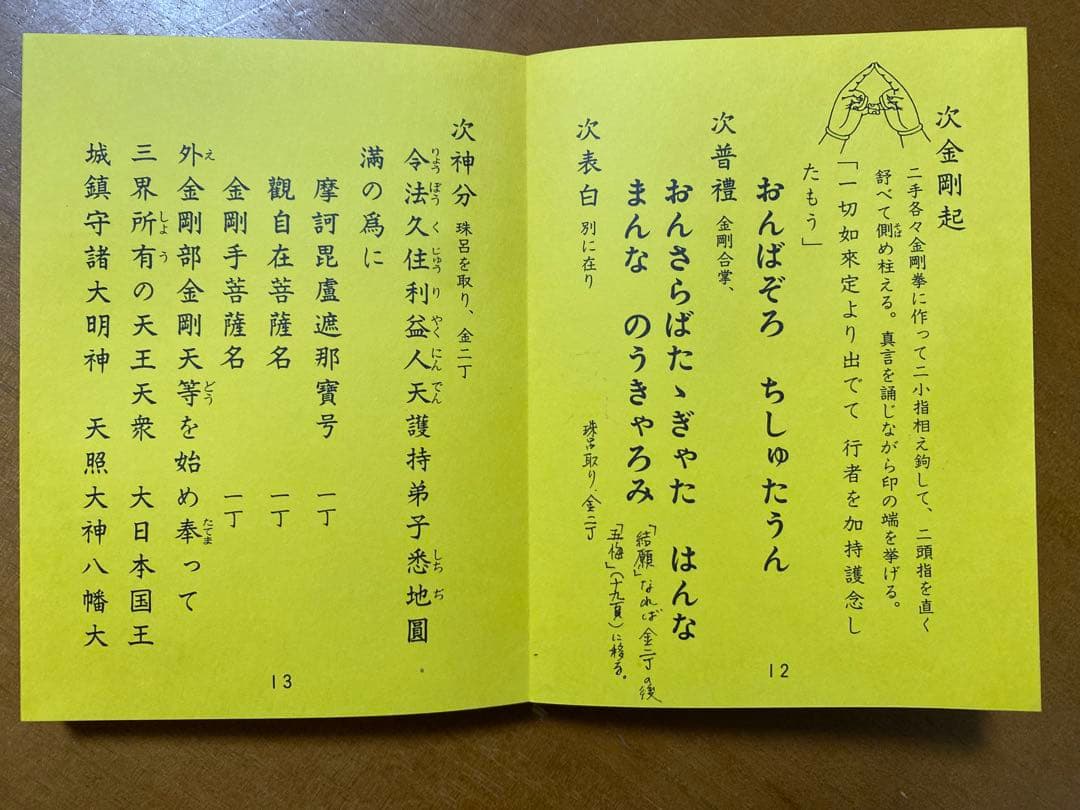 次金剛起
二手各々金剛拳に作って二小指相え鉤して、二頭指を直く
舒べて側め柱える。真言を誦じながら印の端を挙げる。
「一切如來定より出でて 行者を加持護念し
たもう」
おんばぞろ ちしゅたうん
次普禮 金剛合掌、
おんさらばたゝぎゃた はんな
まんな のうきゃろみ
「結願」なれば金二丁の後
「五悔」(十九頁)に移る。
次表白 別に在り
珠呂取り、金二丁
12
次神分 珠呂を取り、金二丁
令法久住利益人天護持弟子悉地圓
満の爲に
摩訶毘盧遮那寶号 一丁
觀自在菩薩名 一丁
金剛手菩薩名 一丁
外金剛部金剛天等を始め奉って
三界所有の天王天衆 大日本国王
城鎮守諸大明神 天照大神八幡大
13